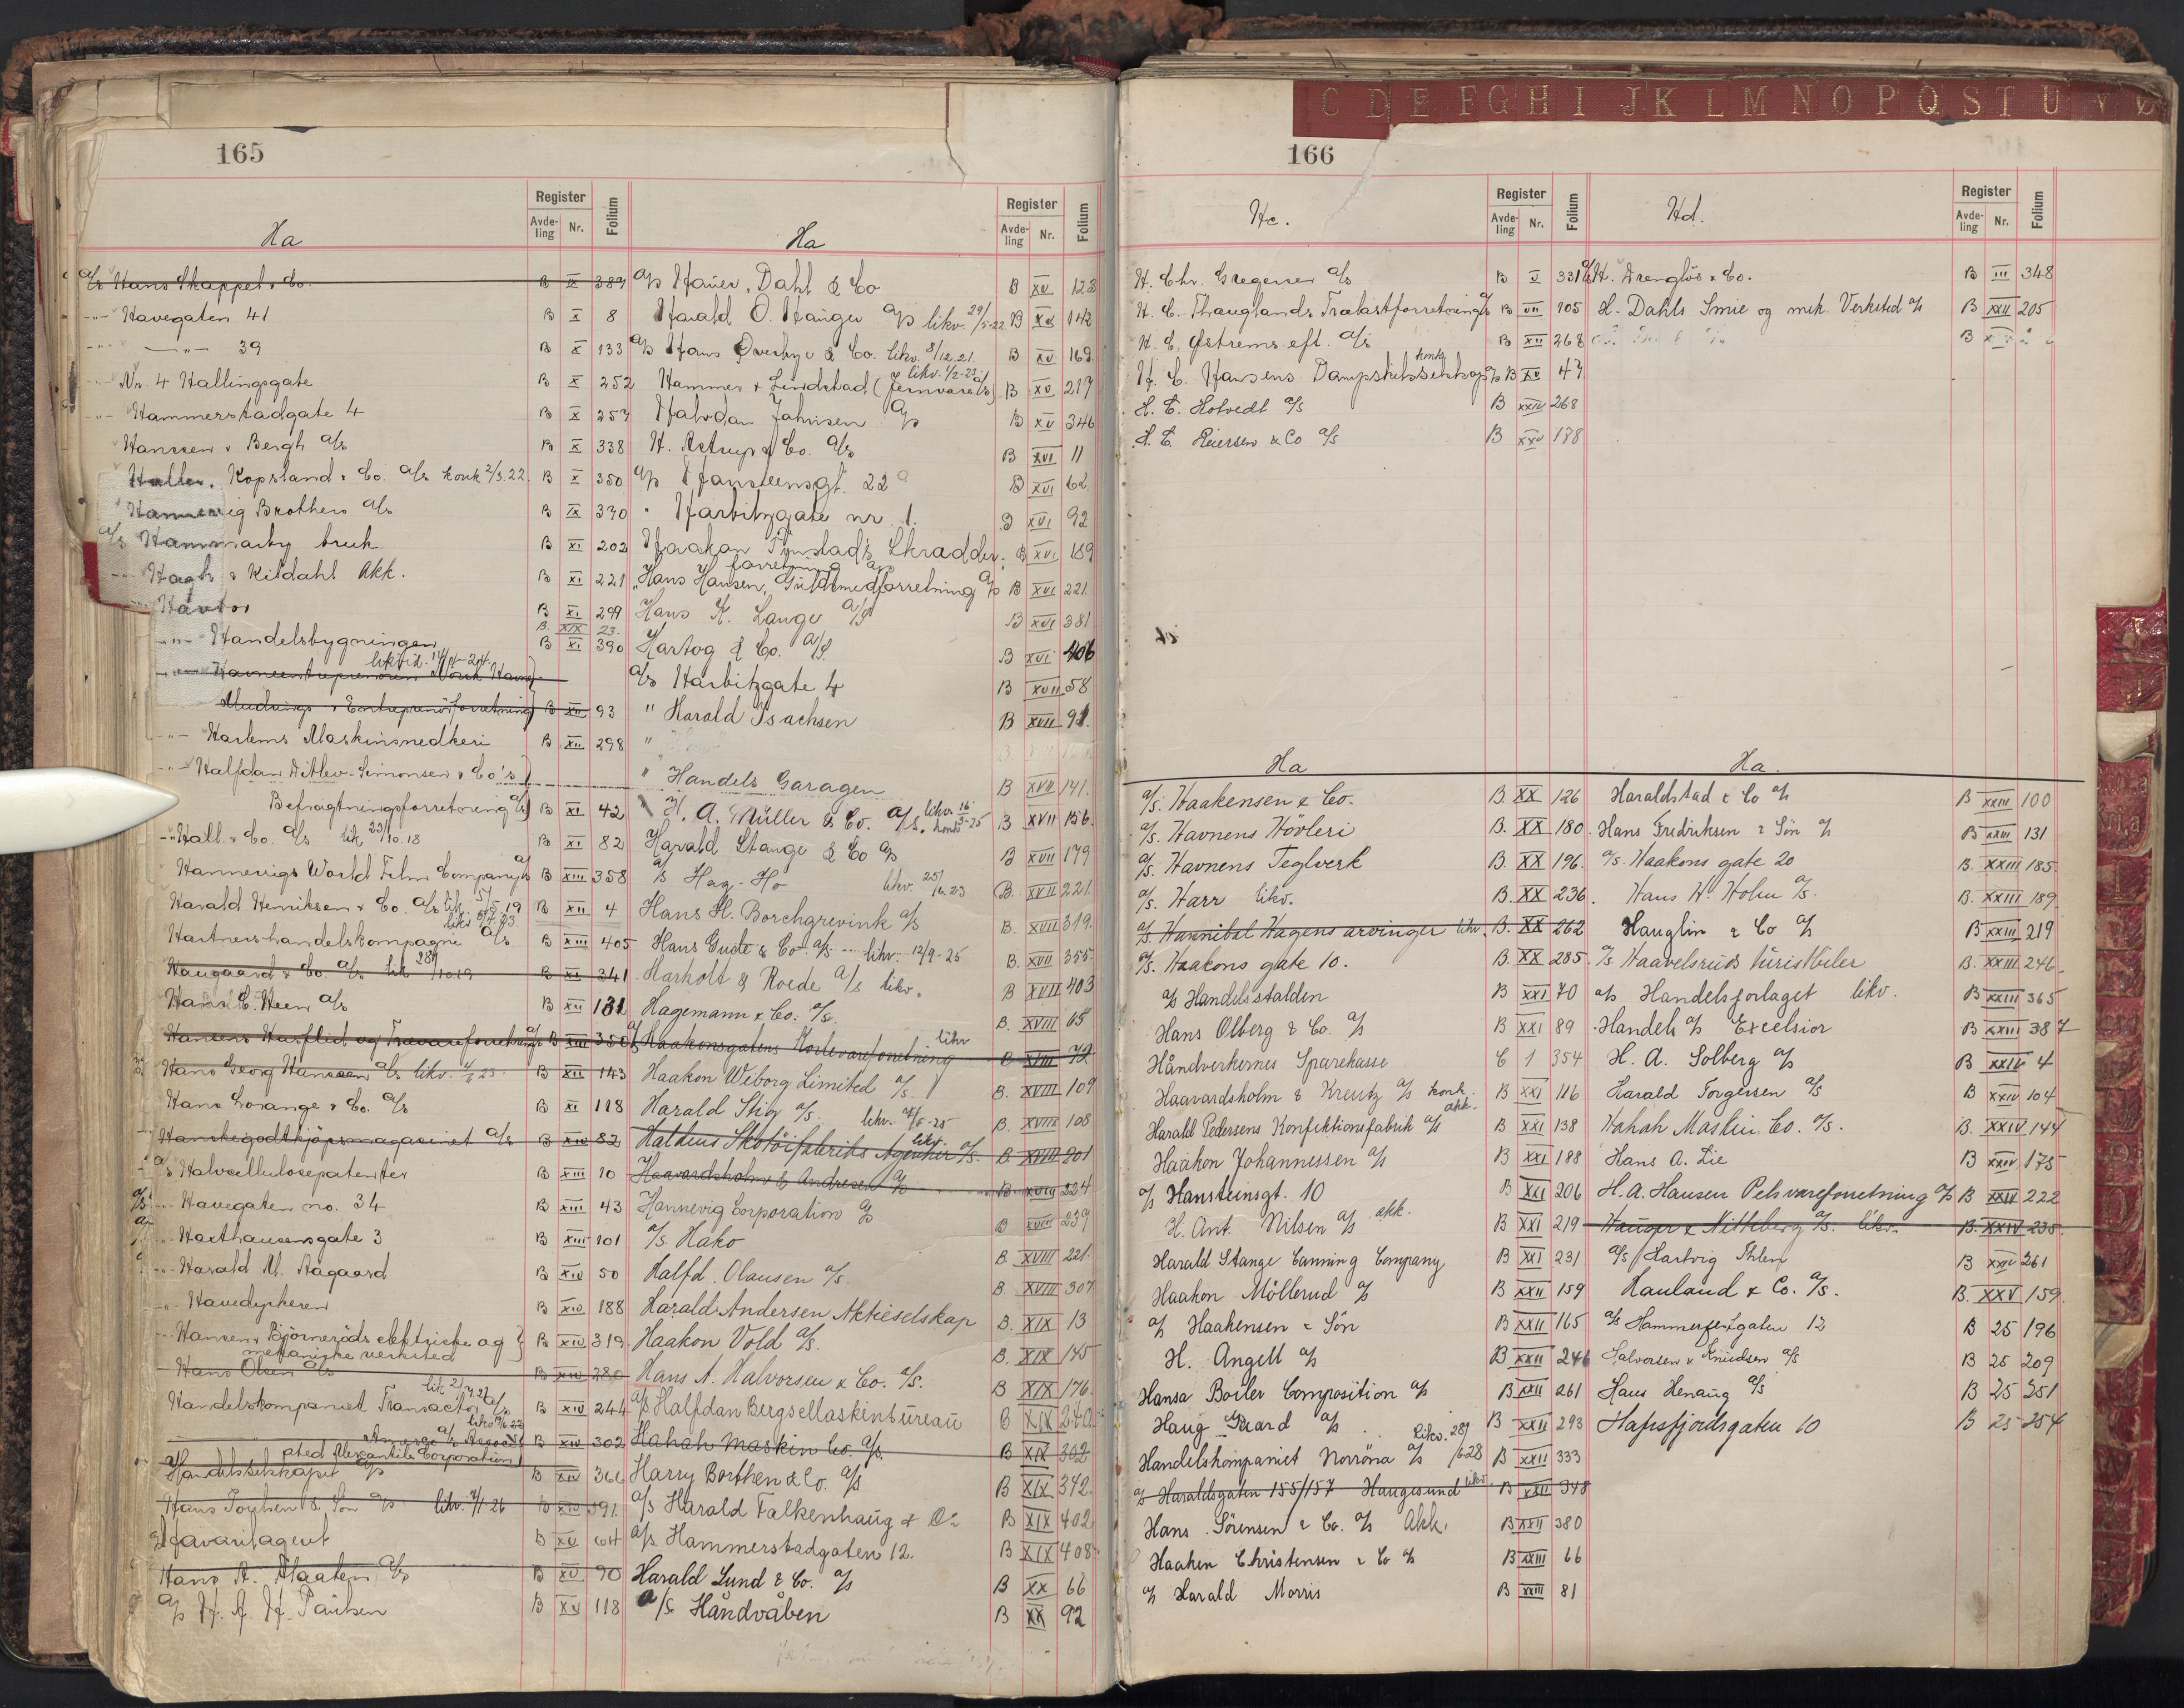 165
Register Folium Register Folium
Avde-ling Nr. Avde-ling Nr.
Ha
A/s Hans Skappel & Co. B IX 389
-"- Havegaten 41 B X 8
-"- -"- 39 B X 133
-"- Nr. 4 Hallingsgate B X 252
-"- Hammerstadgate 4 B X 257
Hanssen & Bergh A/s B X 338
Haller, Kopsland & Co. A/s konk 2/3.22 B X 350
Hannevig Brothers A/s B IX 330
A/s Hammarby bruk B XI 202
-"- Hagb & Kildahl Akk. B XI 221
Havtor B XI 299
B. XIX 23.
-"- Handelsbygningen B XI 390
likvid. 14/4-24.
-"- Havneentreprenøren Norsk Havne
Mudrings & Entreprenörforretning B XII 93
-"- Harlems Maskinsnedkeri B XII 298
-"- Halfdan Ditlev-Simonsen & Co's
Befragtningsforretning A/s B XI 42
-"- Hall & Co. A/s lik 23/10.18 B XI 82
Hannevigs World Film Company A/s B XIII 358
Harald Henriksen & Co. A/s lik 5/5.19 B XII 4
Hartnershandelskompagni A/s B XIII 405
Haugaard & Co. A/s lik 28/10.19 B XI 341
Hans C. Heen A/s B XII 131
Hansens Husflid og Trævareforretning A/s B XIII 350
Hans Georg Hanssen A/s likv. B XII 143
Hans Lorange & Co. A/s B XI 118
Hanskegodtkjöpsmagasinet A/s B XIV 82
A/s Halvcellulosepatenter B XIII 10
A/s -"- Havegaten no. 34 B XIII 43
A/s -"- Harthausensgate 3 B XIII 101
-"- Harald M. Aagaard B XIV 50
-"- Havedyrkeren B XIV 188
-"- Hansen & Björneröds elektriske og B XIV 319
mekaniske verksted
Hans Olsen A/s B XIV 280
Handelskompaniet Transactor A/s B XIV 244
America A/s Associ- B XIV 302
ated Mercantile Corporation
Handelsselskapet A/s B XIV 366
Hans & Søn A/s likv. 7/1 26 B XIV 391
A/s Havariagent B XV 64
Hans A. Flaaten A/s B XV 90
A/s H. A. H. Paulsen B XV 118
Ha
A/s Hauer, Dahl & Co B XV 123
Harald O. Hauger A/s likv. 29/5-22 B XV 142
A/s Hans Överbye & Co. likv. 8/12.21. B XV 169
likv. 1/2-23
Hammer & Lindstad (Jernvare A/s) B XV 217
Halvdan Johnsen A/s B XV 346
H. Astrup & Co. A/s B XVI 11
A/s Hansteensgt. 22 B XVI 62
" Harbitzgate nr. 1. B XVI 92
Haakon Tynstad's Skrædder- B XVI 189
forretning A/s
" Hans Hansen, Guldsmedforretning A/s B XVI 221
Hans K. Lange A/S B XVI 381
Hartog & Co. A/S. B XVI 406
A/s Harbitzgate 4 B XVII 58
" Harald Isachsen B XVII 91.
"
" Handels Garagen B XVII 141.
" H. A. Müller & Co. A/s. likv. 16/3-25 konk B XVII 156.
Harald Stange & Co A/s B XVII 179
A/s Hag-Ho likv. 25/6.23 B. XVII 221.
Hans H. Borchgrevink A/s B. XVII 319.
Hans Gude & Co. A/s likv. 12/9-25 B. XVII 355
Harholt & Roede A/s likv. B XVII 403
Hagemann & Co. A/s. B. XVIII 65
A/s Haakonsgatens Kortevareforretning likv B XVIII 72
Haakon Wiborg Limited A/s. B. XVIII 109
Harald Stig A/s. likv. B. XVIII 108
Haldens Skotöifabriks Agentur A/s. likv. B. XVIII 201
Haavardsholm & Andresen A/s B XVIII 224
Hannevig Corporation A/s B XVIII 239
A/s. Hako B. XVIII 221.
Halfd. Olausen A/s. B XVIII 307
Harald Andersen Aktieselskap B. XIX 13
Haakon Vold A/s. B. XIX 145
Hans A. Halvorsen & Co. A/s. B XIX 176.
A/s Halfdan Bergs Maskinbureau B XIX 270
Hahah Maskin Co A/s. B XIX 302
Harry Borthen & Co. A/s B XIX 342.
A/s Harald Falkenhaug & Co B XIX 402
A/s Hammerstadgaten 12. B XIX 408
Harald Lund & Co. A/s B XX 66
A/s Håndvåben B XX 92
C D E F G H I J K L M N O P Q S T U V Ø
166
Register Folium Register Folium
Avde-ling Nr. Avde-ling Nr.
Hc.
H. Chr. Gregersen A/s B V 331
H. C. Thauglands Trælastforretning A/s B VII 105
H. C. Østrems eft. A/s B XII 268
H. C. Hansens Dampskibsselskap A/s konk B XV 47
H. C. Hotvedt A/s B XXIV 268
H. C. Reiersen & Co A/s B XXV 178
Hd.
A/s H. Drenglös & Co. B III 348
H. Dahls Smie og mek. Verksted A/s B XXII 205
B
Ha
A/s. Haakensen & Co. B. XX 126
A/s. Havnens Hövleri B. XX 180
A/s. Havnens Teglverk B. XX 196.
A/s. Harr likv. B. XX 236.
A/s. Hannibal Hagens arvinger likv. B. XX 262
A/s. Haakons gate 10. B. XX 285.
A/s Handelsstalden B XXI 70
Hans Olberg & Co. A/s B XXI 89
Håndverkernes Sparekasse C 1 354
Haavardsholm & Kreutz A/s konk. B XXI 116
Harald Pedersens Konfektionsfabrik A/s akk. B XXI 138
Haakon Johannessen A/s B XXI 188
A/s Hansteinsgt. 10 B XXI 206
H. Ant. Nilsen A/s akk. B XXI 219
Harald Stange Canning Company B XXI 231
Haakon Möllerud A/s B XXII 159
A/s Haakensen & Sön B XXII 165
H. Angell A/s B XXII 246
Hansa Boiler Composition A/s B XXII 261
Haug Gaard A/s B XXII 293
Handelskompaniet Norröna A/s likv. 28/6 28 B XXII 333
A/s Haraldsgaten 155/157 Haugesund likv. B XXII 348
Hans Sörensen & Co. A/s Akk. B XXII 380
Haaken Christensen & Co A/s B XXIII 66
A/s Harald Morris B XXIII 81
Ha.
Haraldstad & Co A/s B XXIII 100
Hans Fredriksen & Sön A/s B XXIII 131
A/s. Haakons gate 20 B. XXIII 185
Hans W. Holm A/s. B. XXIII 189
Hauglin & Co A/s B XXIII 219
A/s Haavelsruds turistbiler B. XXIII 246
A/s Handelsforlaget likv. B XXIII 365
Handels A/s Excelsior B XXIII 387
H. A. Solberg A/s B XXIV 4
Harald Torgersen A/s B XXIV 104
Hahah Maskin Co. A/s. B. XXIV 144
Hans A. Lie B XXIV 175
H. A. Hansen Pelsvareforretning A/s B XXIV 222
Hauger & Nitteberg A/s. likv. B. XXIV 235
A/s Hartvig Ihlen B XXIV 261
Hauland & Co. A/s. B. XXV 159
A/s Hammerfestgaten 12 B 25 196
Halvorsen & Knudsen A/s B 25 209
Hans Henaug A/s B 25 251
Hafrsfjordsgaten 10 B 25 254